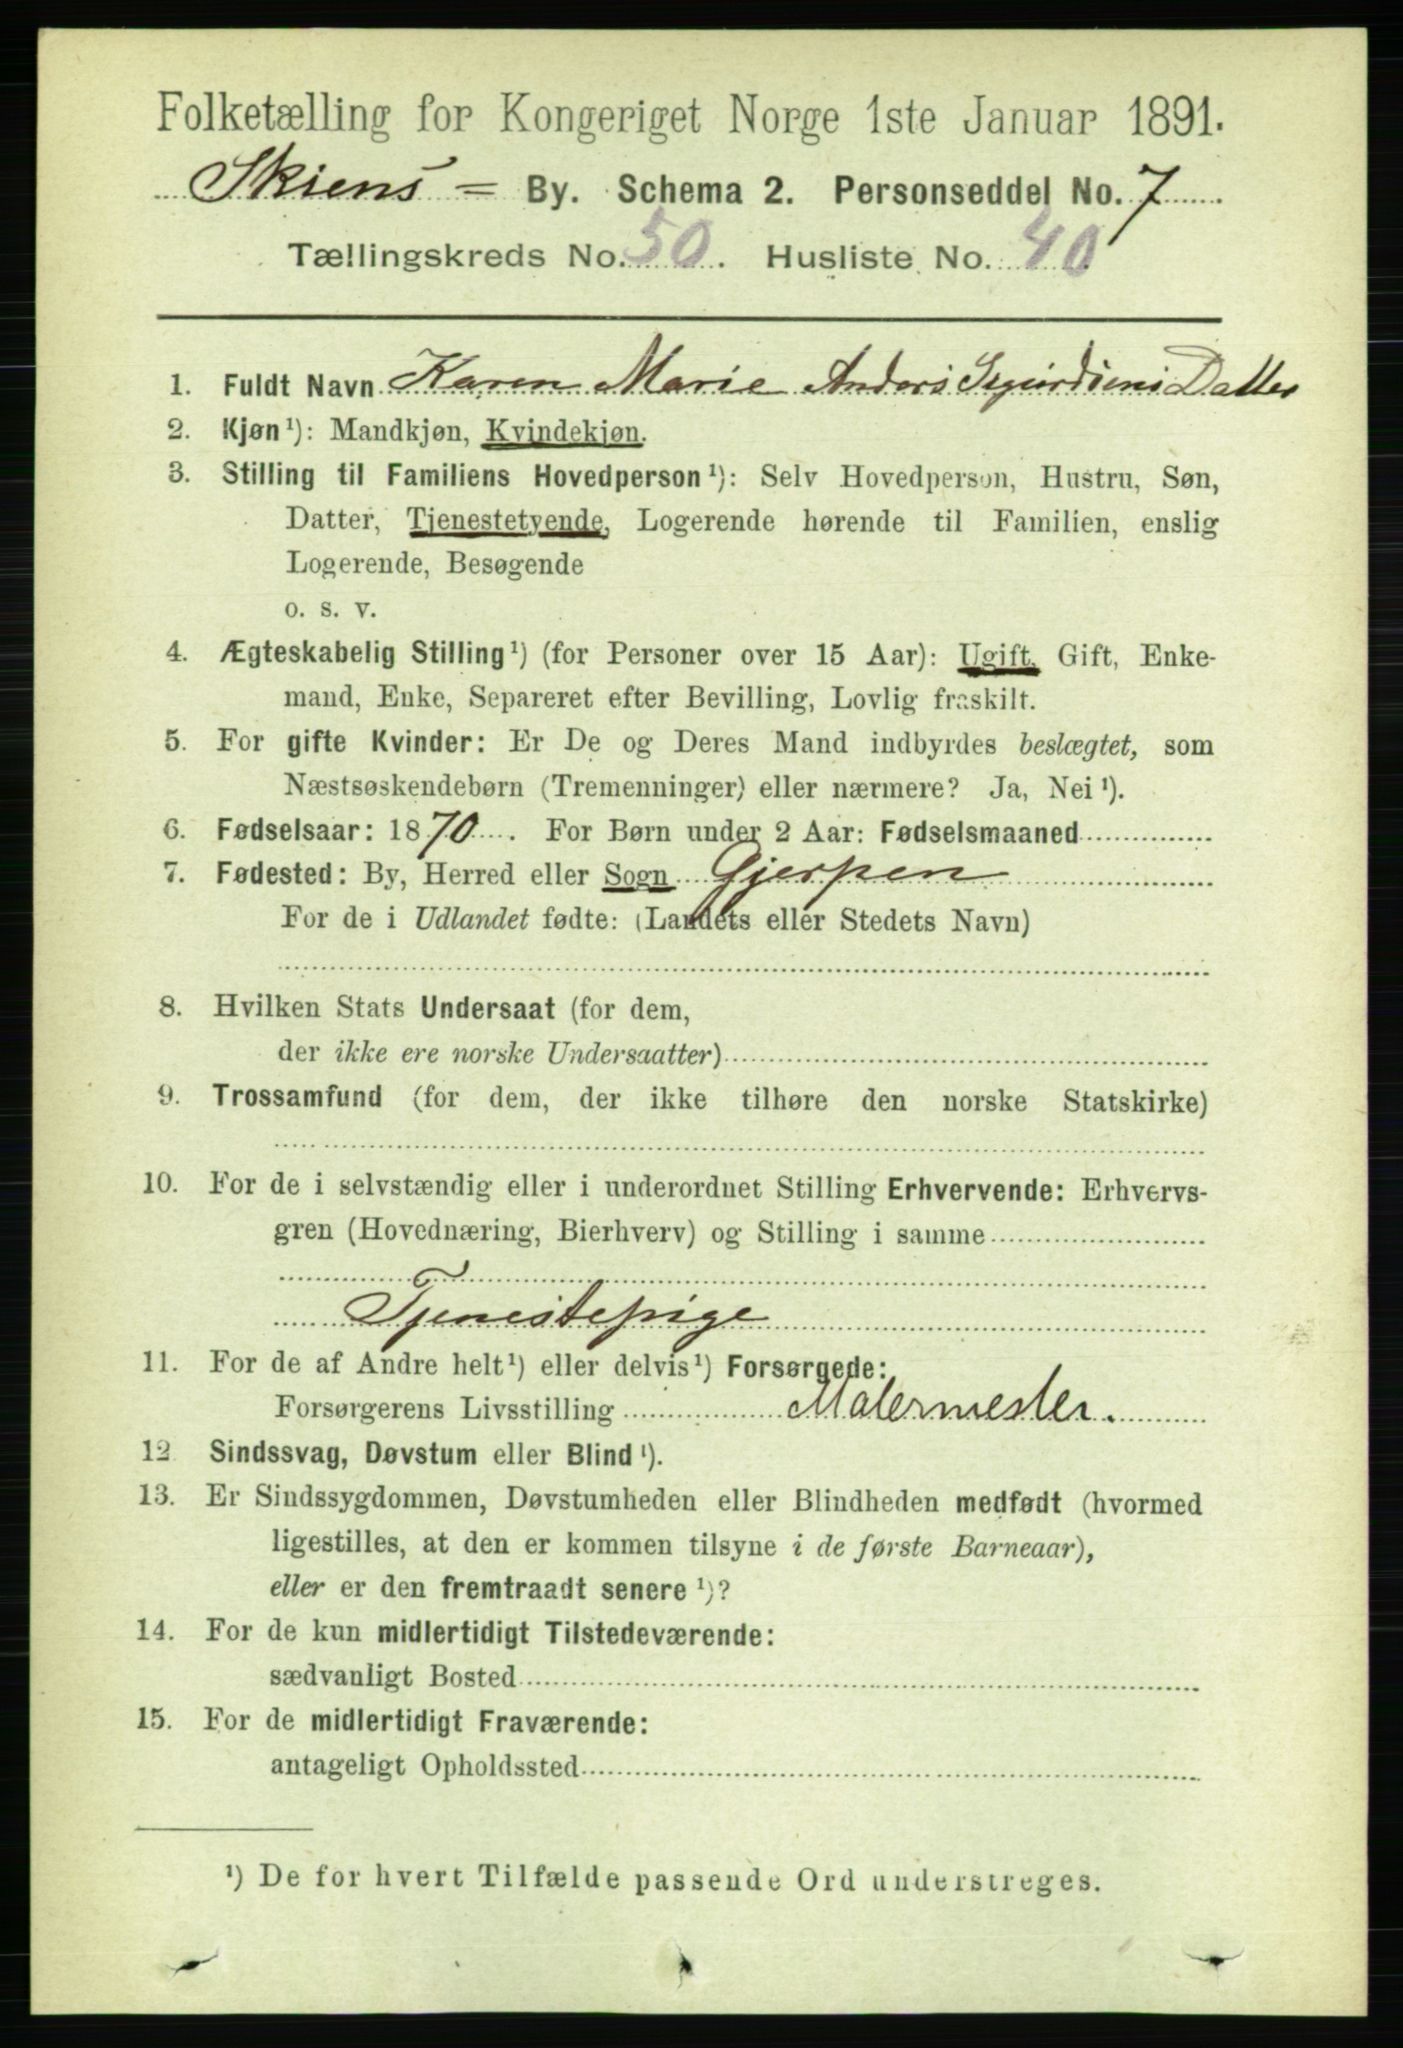 Folketælling for Kongeriget Norge 1ste Januar 1891.
Skiens = By. Schema 2. Personseddel No. 7
Tællingskreds No. 50. Husliste No. 40
1. Fuldt Navn Karen Marie Anders Datter
2. Kjøn¹): Mandkjøn, Kvindekjøn.
3. Stilling til Familiens Hovedperson¹): Selv Hovedperson, Hustru, Søn,
Datter, Tjenestetyende, Logerende hørende til Familien, enslig
Logerende, Besøgende
o. s. v.
4. Ægteskabelig Stilling¹) (for Personer over 15 Aar): Ugift, Gift, Enke-
mand, Enke, Separeret efter Bevilling, Lovlig fraskilt.
5. For gifte Kvinder: Er De og Deres Mand indbyrdes beslægtet, som
Næstsøskendebørn (Tremenninger) eller nærmere? Ja, Nei¹).
6. Fødselsaar: 1870. For Børn under 2 Aar: Fødselsmaaned
7. Fødested: By, Herred eller Sogn Gjerpen
For de i Udlandet fødte: (Landets eller Stedets Navn)
8. Hvilken Stats Undersaat (for dem,
der ikke ere norske Undersaatter)
9. Trossamfund (for dem, der ikke tilhøre den norske Statskirke)
10. For de i selvstændig eller i underordnet Stilling Erhvervende: Erhvervs-
gren (Hovednæring, Bierhverv) og Stilling i samme
Tjenestepige
11. For de af Andre helt¹) eller delvis¹) Forsørgede:
Forsørgerens Livsstilling Malermester.
12 Sindssvag, Døvstum eller Blind¹).
13. Er Sindssygdommen, Døvstumheden eller Blindheden medfødt (hvormed
ligestilles, at den er kommen tilsyne i de første Barneaar),
eller er den fremtraadt senere¹)?
14. For de kun midlertidigt Tilstedeværende:
sædvanligt Bosted
15. For de midlertidigt Fraværende:
antageligt Opholdssted
¹) De for hvert Tilfælde passende Ord understreges.